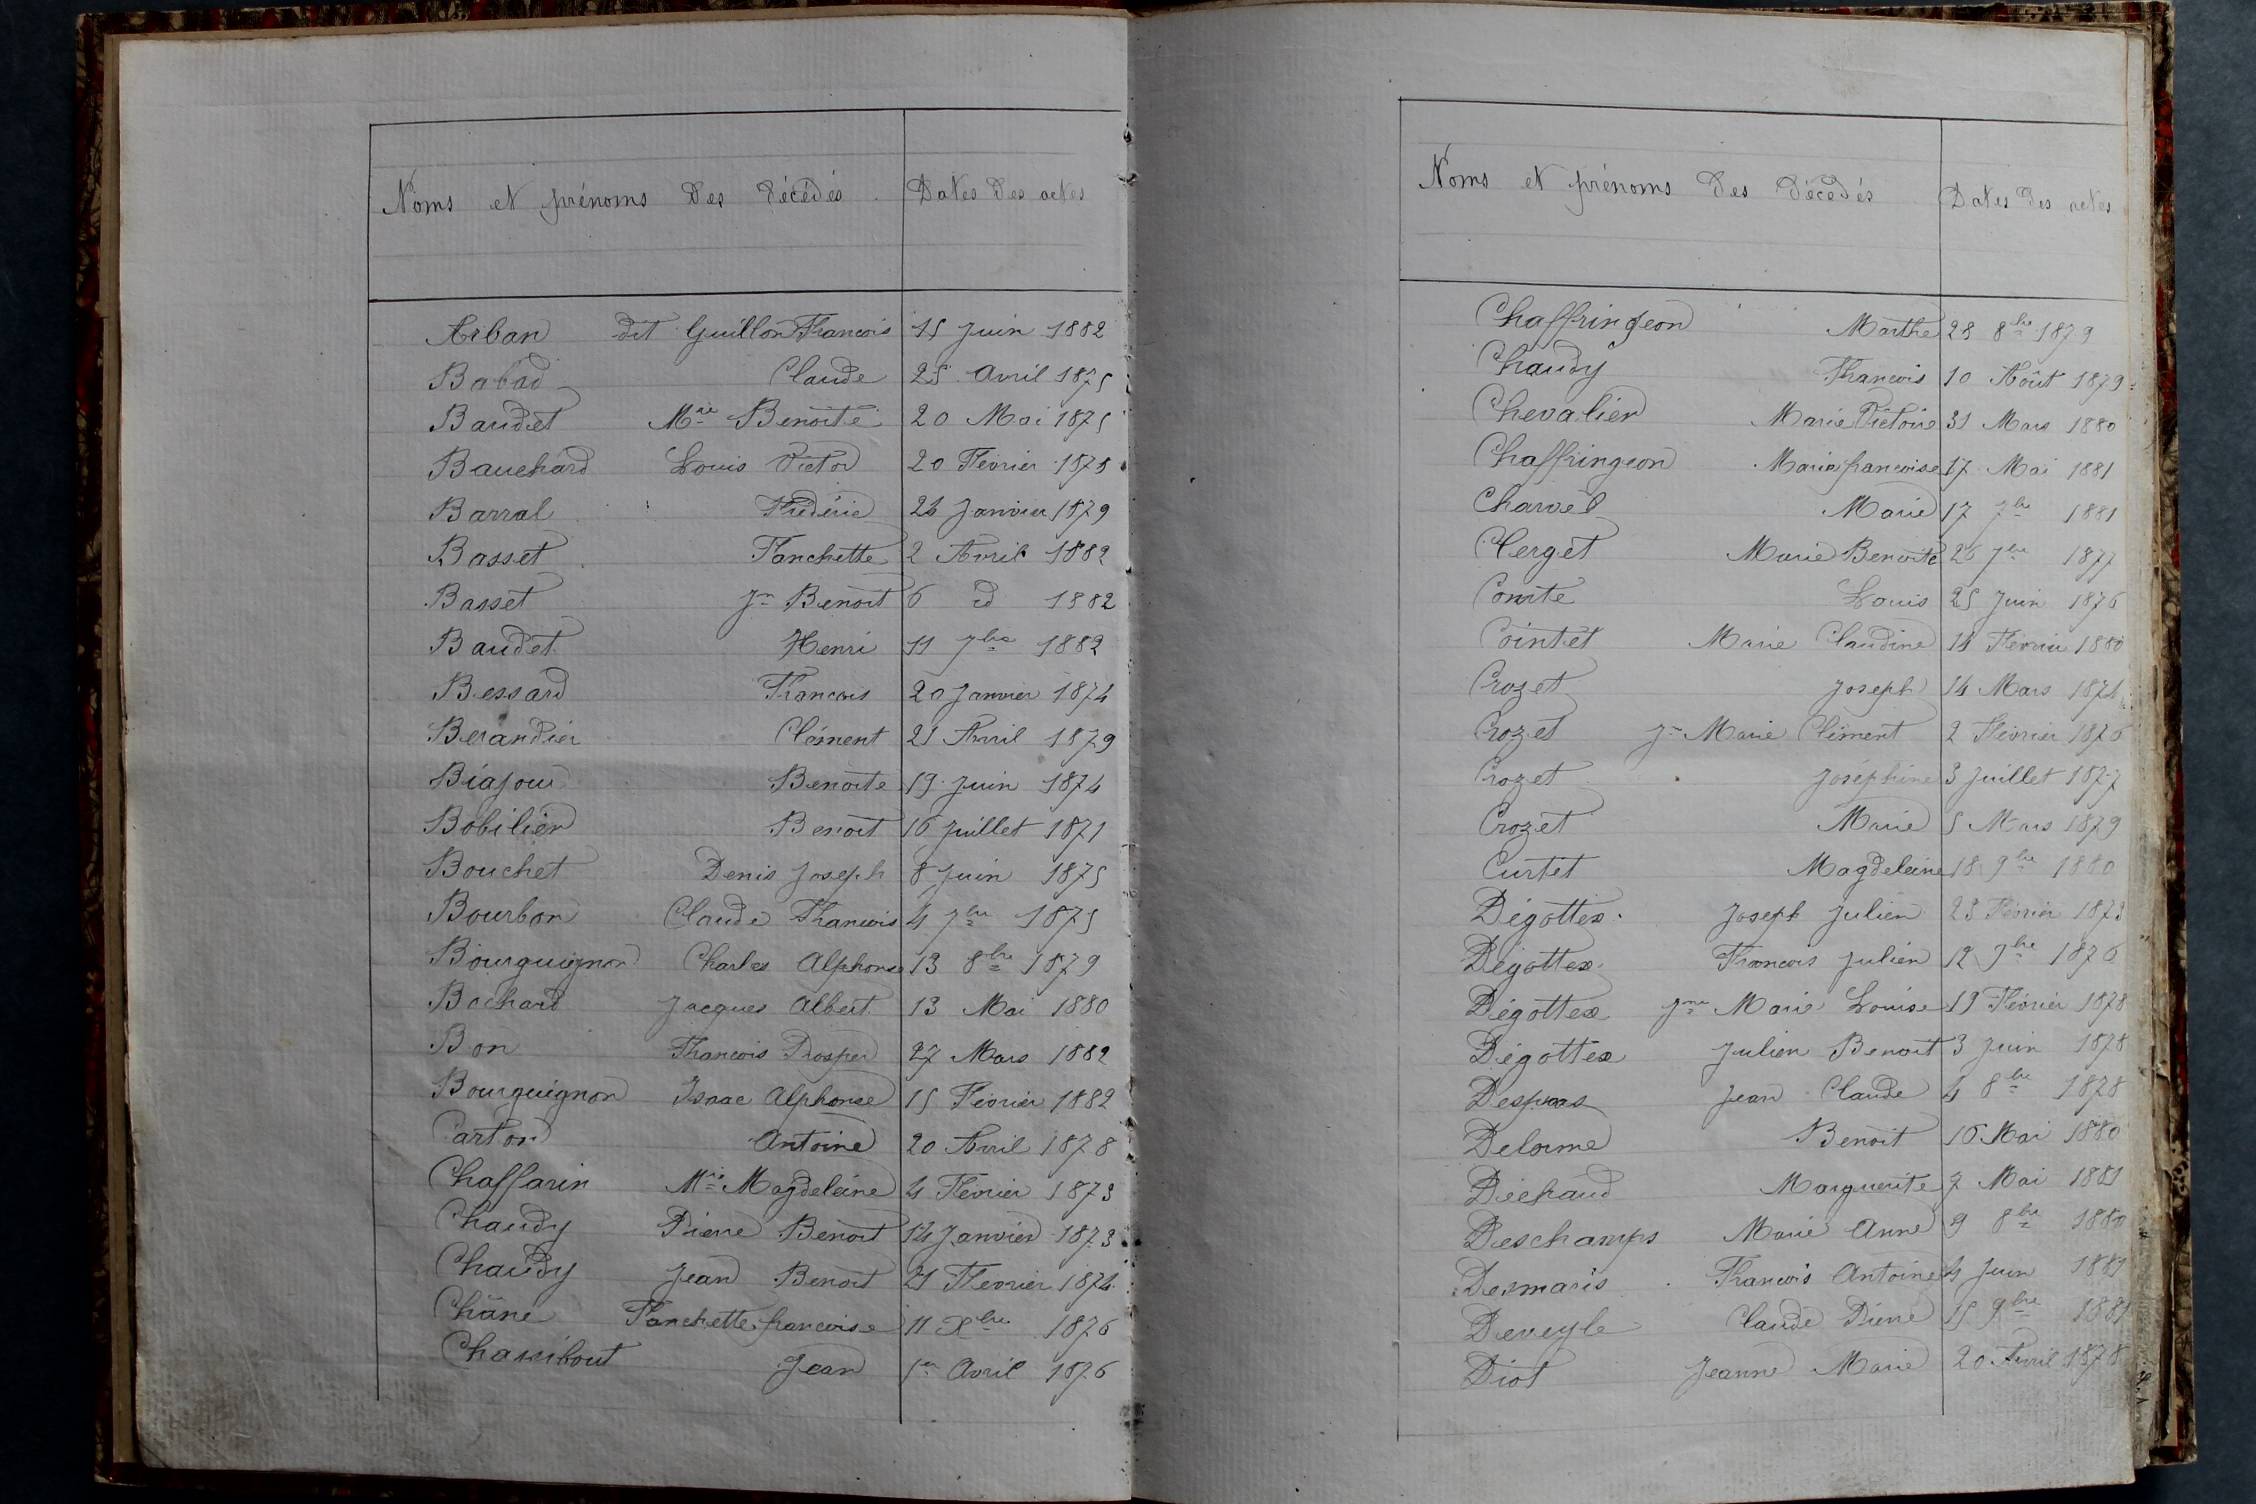 Noms et prénoms des décédés Dates des actes
Arban dit Guillon François 15 Juin 1882
Babad Claude 25 Avril 1875
Baudet Mie Benoite 20 Mai 1875
Bauchard Louis Victor 20 Février 1878
Barral Frédéric 26 Janvier 1879
Basset Fanchette 2 Avril 1882
Basset Jn Benoit 6 id 1882
Baudet Henri 11 7bre 1882
Bessard François 20 Janvier 1874
Berandier Clément 21 Avril 1879
Biajoux Benoite 19 Juin 1874
Bobilier Benoit 16 Juillet 1871
Bouchet Denis Joseph 8 Juin 1875
Bourbon Claude François 4 7bre 1875
Bourguignon Charles Alphonse 13 8bre 1879
Bochard Jacques Albert 13 Mai 1880
Bon François Prosper 27 Mars 1882
Bourguignon Isaac Alphonse 15 Février 1882
Carton Antoine 20 Avril 1878
Chaffarin Mie Magdeleine 4 Février 1873
Chaudy Pierre Benoit 14 Janvier 1873
Chaudy Jean Benoit 21 Février 1874
Châne Fanchette françoise 11 Xbre 1876
Chassibout Jean 1er Avril 1876
Noms et prénoms des décédés Dates des actes
Chaffringeon Marthe 28 8bre 1879
Chaudy François 10 Août 1879
Chevalier Marie Victoire 31 Mars 1880
Chaffringeon Marie françoise 17 Mai 1881
Charvet Marie 17 7bre 1881
Clerget Marie Benoite 26 7bre 1877
Comte Louis 25 Juin 1876
Cointet Marie Claudine 14 Février 1880
Crozet Joseph 14 Mars 1874
Crozet Jn Marie Clément 2 Février 1876
Crozet Joséphine 3 Juillet 1877
Crozet Marie 5 Mars 1879
Curtet Magdeleine 18 9bre 1880
Dégottex Joseph Julien 23 Février 1873
Dégottex François Julien 12 9bre 1876
Dégottex Jne Marie Louise 19 Février 1878
Dégottex Julien Benoit 3 Juin 1878
Despras Jean Claude 4 8bre 1878
Delorme Benoit 16 Mai 1880
Déchaud Marguerite 7 Mai 1881
Deschamps Marie Anne 9 8bre 1880
Desmaris François Antoine 4 Juin 1881
Deveyle Claude Pierre 15 9bre 1881
Diot Jeanne Marie 20 Avril 1878